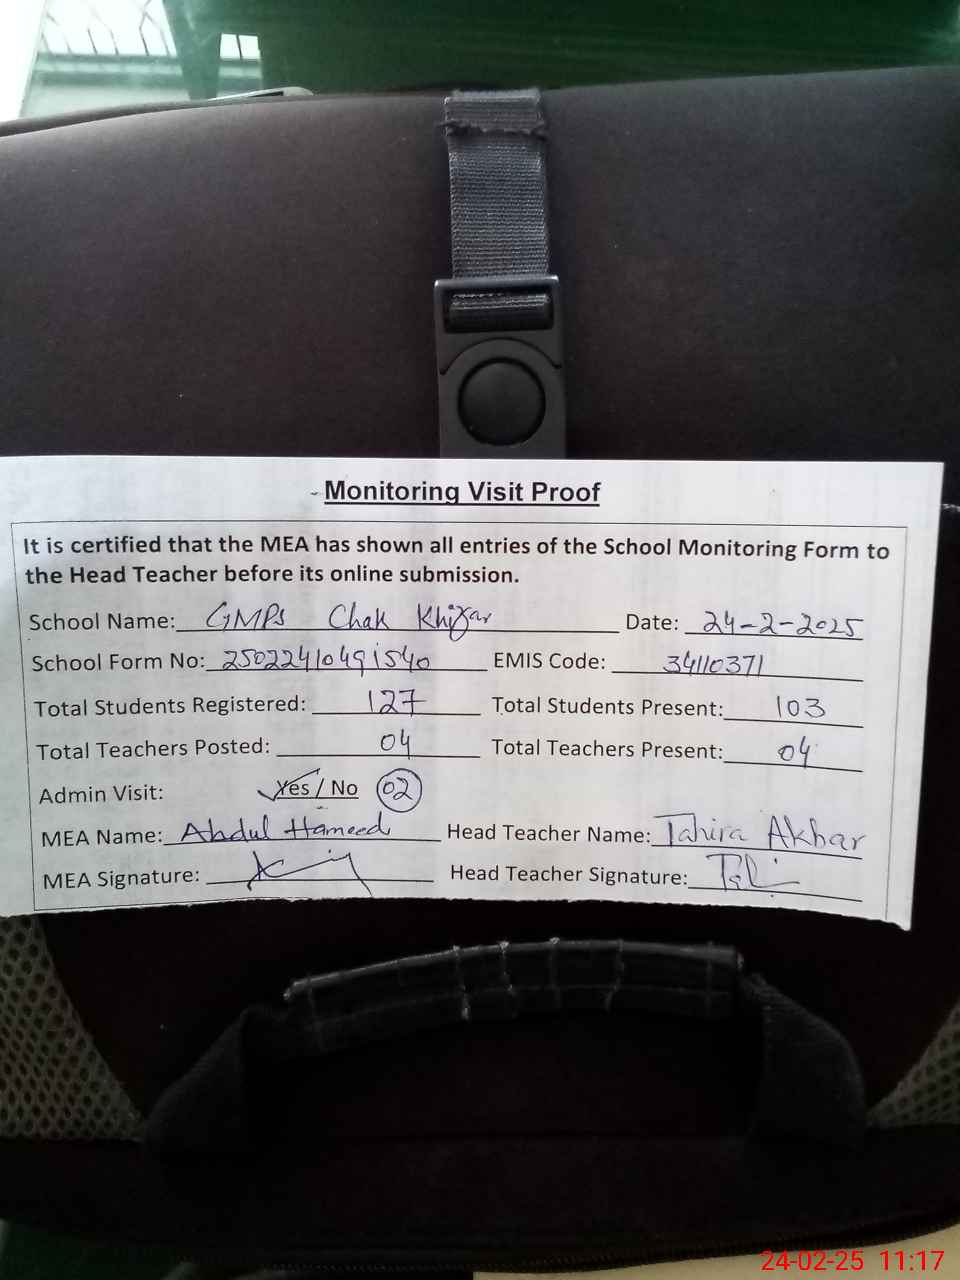 Monitoring Visit Proof
It is certified that the MEA has shown all entries of the School Monitoring Form to
the Head Teacher before its online submission.
School Name: GMPS Chak Khizar Date: 24-2-2025
School Form No: 25022410491540 EMIS Code: 34110371
Total Students Registered: 127 Total Students Present: 103
Total Teachers Posted: 04 Total Teachers Present: 04
Admin Visit: Yes / No 02
MEA Name: Abdul Hameed Head Teacher Name: Tahira Akbar
MEA Signature: Head Teacher Signature:
24-02-25 11:17